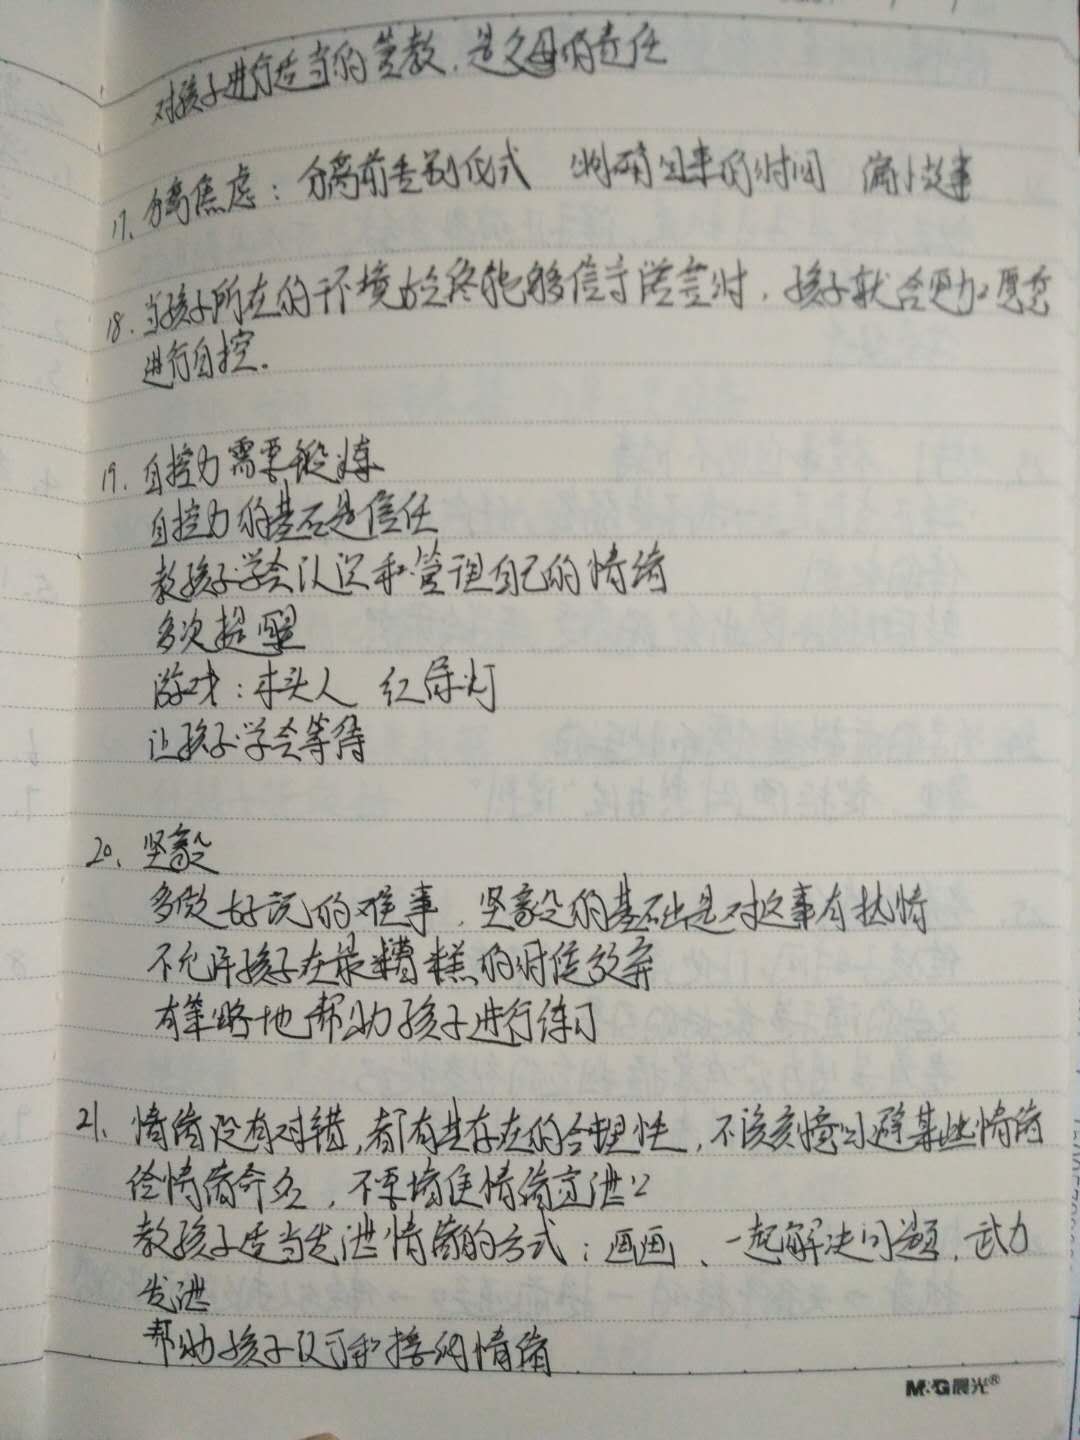 对孩子进行适当的管教，是父母的责任
17、分离焦虑：分离前告别仪式 明确回来的时间 编小故事
18、当孩子所在的环境始终能够信守诺言时，孩子就会更加愿意
进行自控．
19、自控力需要锻炼
自控力的基石是信任
教孩子学会认识和管理自己的情绪
多次提醒
游戏：木头人 红绿灯
让孩子学会等待
20、坚毅
多做好玩的难事，坚毅的基础是对这事有热情
不允许孩子在最糟糕的时候放弃
有策略地帮助孩子进行练习
21、情绪没有对错，都有其存在的合理性，不该刻意回避某些情绪
给情绪命名，不要堵住情绪宣泄口
教孩子适当发泄情绪的方式：画画、一起解决问题、武力
发泄
帮助孩子认可和接纳情绪
M&G晨光®